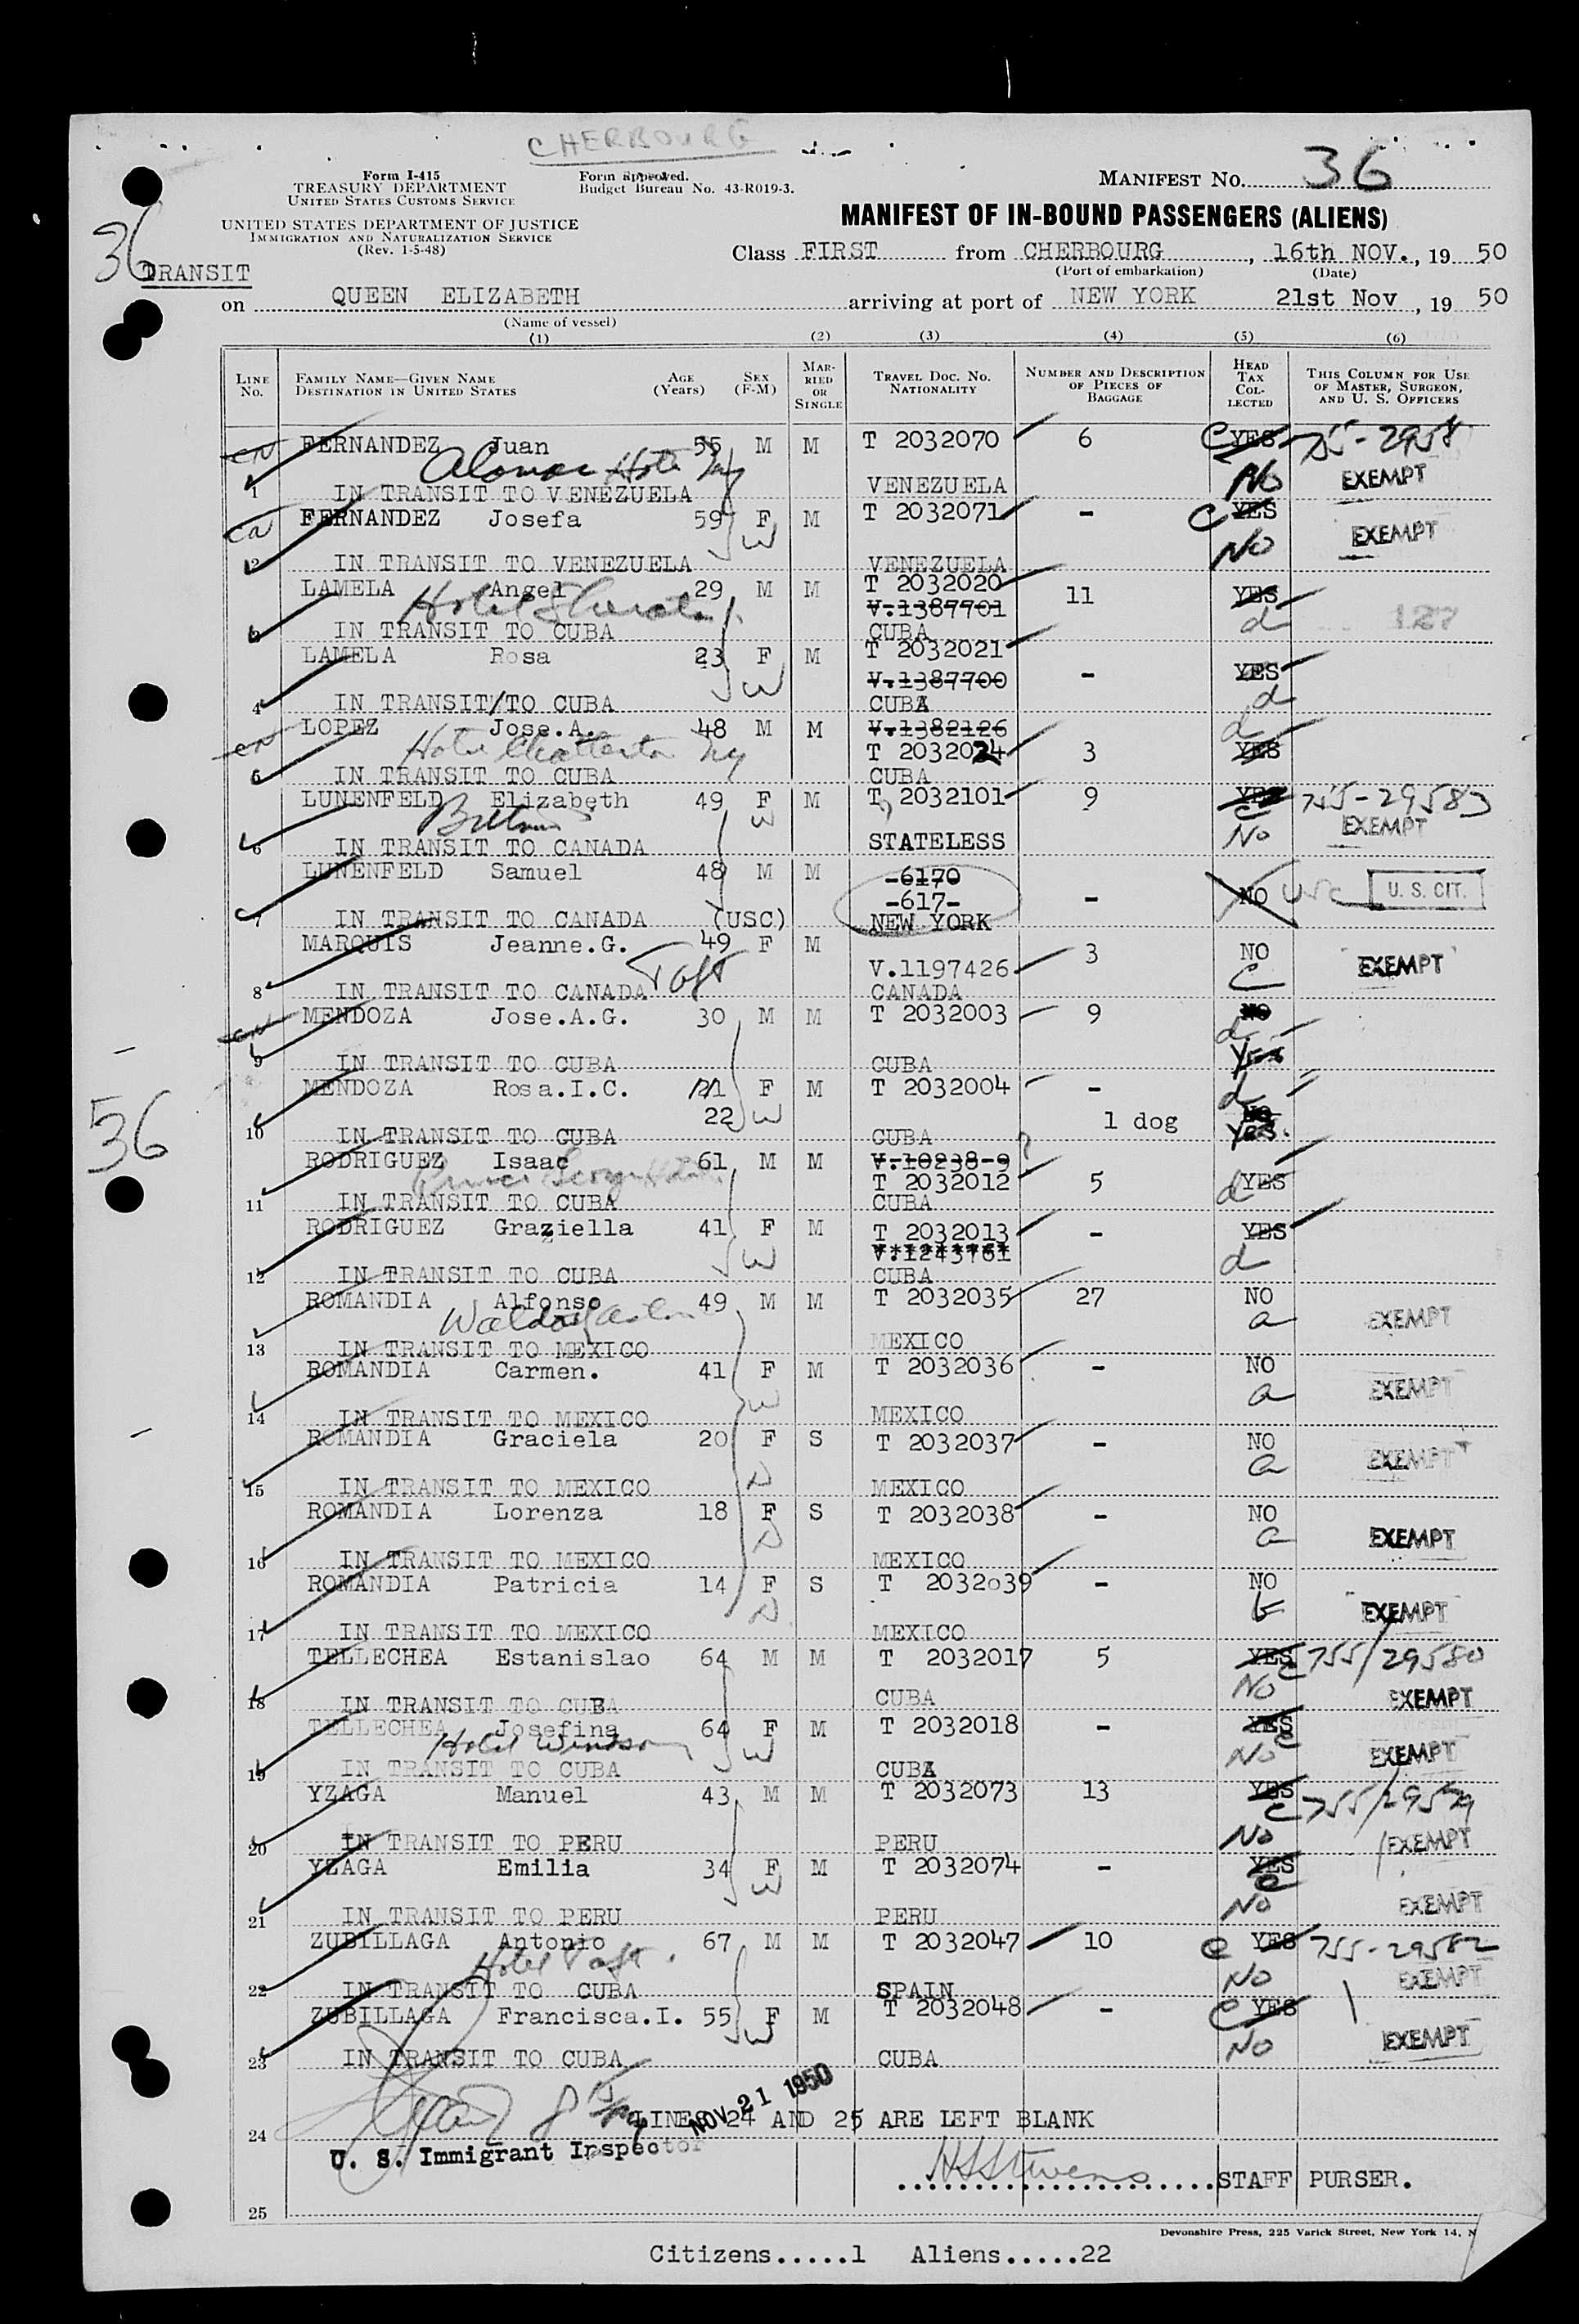 CHERBOURG
Form I-415
TREASURY DEPARTMENT
UNITED STATES CUSTOMS SERVICE
Form approved.
Budget Bureau No. 43-R019-3.
MANIFEST NO. 36
UNITED STATES DEPARTMENT OF JUSTICE
IMMIGRATION AND NATURALIZATION SERVICE
(Rev. 1-5-48)
MANIFEST OF IN-BOUND PASSENGERS (ALIENS)
36
TRANSIT
Class FIRST from CHERBOURG, 16th NOV., 19 50
(Port of embarkation) (Date)
on QUEEN ELIZABETH arriving at port of NEW YORK 21st Nov, 19 50
(Name of vessel)
(1) (2) (3) (4) (5) (6)
LINE No. FAMILY NAME—GIVEN NAME DESTINATION IN UNITED STATES AGE (Years) SEX (F-M) MARRIED OR SINGLE TRAVEL DOC. NO. NATIONALITY NUMBER AND DESCRIPTION OF PIECES OF BAGGAGE HEAD TAX COLLECTED THIS COLUMN FOR USE OF MASTER, SURGEON, AND U. S. OFFICERS
FERNANDEZ Juan 55 M M T 2032070 6 C YES 755-2958
No EXEMPT
1 IN TRANSIT TO VENEZUELA VENEZUELA
FERNANDEZ Josefa 59 F M T 2032071 - C YES
W No EXEMPT
2 IN TRANSIT TO VENEZUELA VENEZUELA
LAMELA Angel 29 M M T 2032020 11 YES
Hotel V.1387701 d 127
3 IN TRANSIT TO CUBA CUBA
LAMELA Rosa 23 F M T 2032021 - YES
W V.1387700 d
4 IN TRANSIT/TO CUBA CUBA
LOPEZ Jose.A. 48 M M V.1382126 d
Hotel Chatterton NY T 2032024 3 YES
5 IN TRANSIT TO CUBA CUBA
LUNENFELD Elizabeth 49 F M T 2032101 9 YES 755-29583
W C No EXEMPT
6 IN TRANSIT TO CANADA STATELESS
LUNENFELD Samuel 48 M M -6170
-617- - NO USC U. S. CIT.
7 IN TRANSIT TO CANADA (USC) NEW YORK
MARQUIS Jeanne.G. 49 F M V.1197426 3 NO
Taft C EXEMPT
8 IN TRANSIT TO CANADA CANADA
MENDOZA Jose.A.G. 30 M M T 2032003 9 NO
d Yes
9 IN TRANSIT TO CUBA CUBA
MENDOZA Rosa.I.C. 21 F M T 2032004 - d
22 W 1 dog NO
Yes.
10 IN TRANSIT TO CUBA CUBA
36
RODRIGUEZ Isaac 61 M M V.10238-9
T 2032012 5 d YES
11 IN TRANSIT TO CUBA CUBA
RODRIGUEZ Graziella 41 F M T 2032013 - YES
W V.1243761 d
12 IN TRANSIT TO CUBA CUBA
ROMANDIA Alfonso 49 M M T 2032035 27 NO
a EXEMPT
13 IN TRANSIT TO MEXICO MEXICO
ROMANDIA Carmen. 41 F M T 2032036 - NO
W a EXEMPT
14 IN TRANSIT TO MEXICO MEXICO
ROMANDIA Graciela 20 F S T 2032037 - NO
D a EXEMPT
15 IN TRANSIT TO MEXICO MEXICO
ROMANDIA Lorenza 18 F S T 2032038 - NO
D a EXEMPT
16 IN TRANSIT TO MEXICO MEXICO
ROMANDIA Patricia 14 F S T 2032039 - NO
D b EXEMPT
17 IN TRANSIT TO MEXICO MEXICO
TELLECHEA Estanislao 64 M M T 2032017 5 YES C 755/29580
No EXEMPT
18 IN TRANSIT TO CUBA CUBA
TELLECHEA Josefina 64 F M T 2032018 - YES C
Hotel Windsor W No EXEMPT
19 IN TRANSIT TO CUBA CUBA
YZAGA Manuel 43 M M T 2032073 13 YES C
No EXEMPT
20 IN TRANSIT TO PERU PERU
YZAGA Emilia 34 F M T 2032074 - YES C
W No EXEMPT
21 IN TRANSIT TO PERU PERU
ZUBILLAGA Antonio 67 M M T 2032047 10 C YES 755-29582
Hotel Taft. No EXEMPT
22 IN TRANSIT TO CUBA SPAIN
ZUBILLAGA Francisca.I. 55 F M T 2032048 - C YES
W No EXEMPT
23 IN TRANSIT TO CUBA CUBA
NOV 21 1950
24 LINES 24 AND 25 ARE LEFT BLANK
U. S. Immigrant Inspector
HSStevens STAFF PURSER.
25
Devonshire Press, 225 Varick Street, New York 14, N
Citizens.....1 Aliens.....22